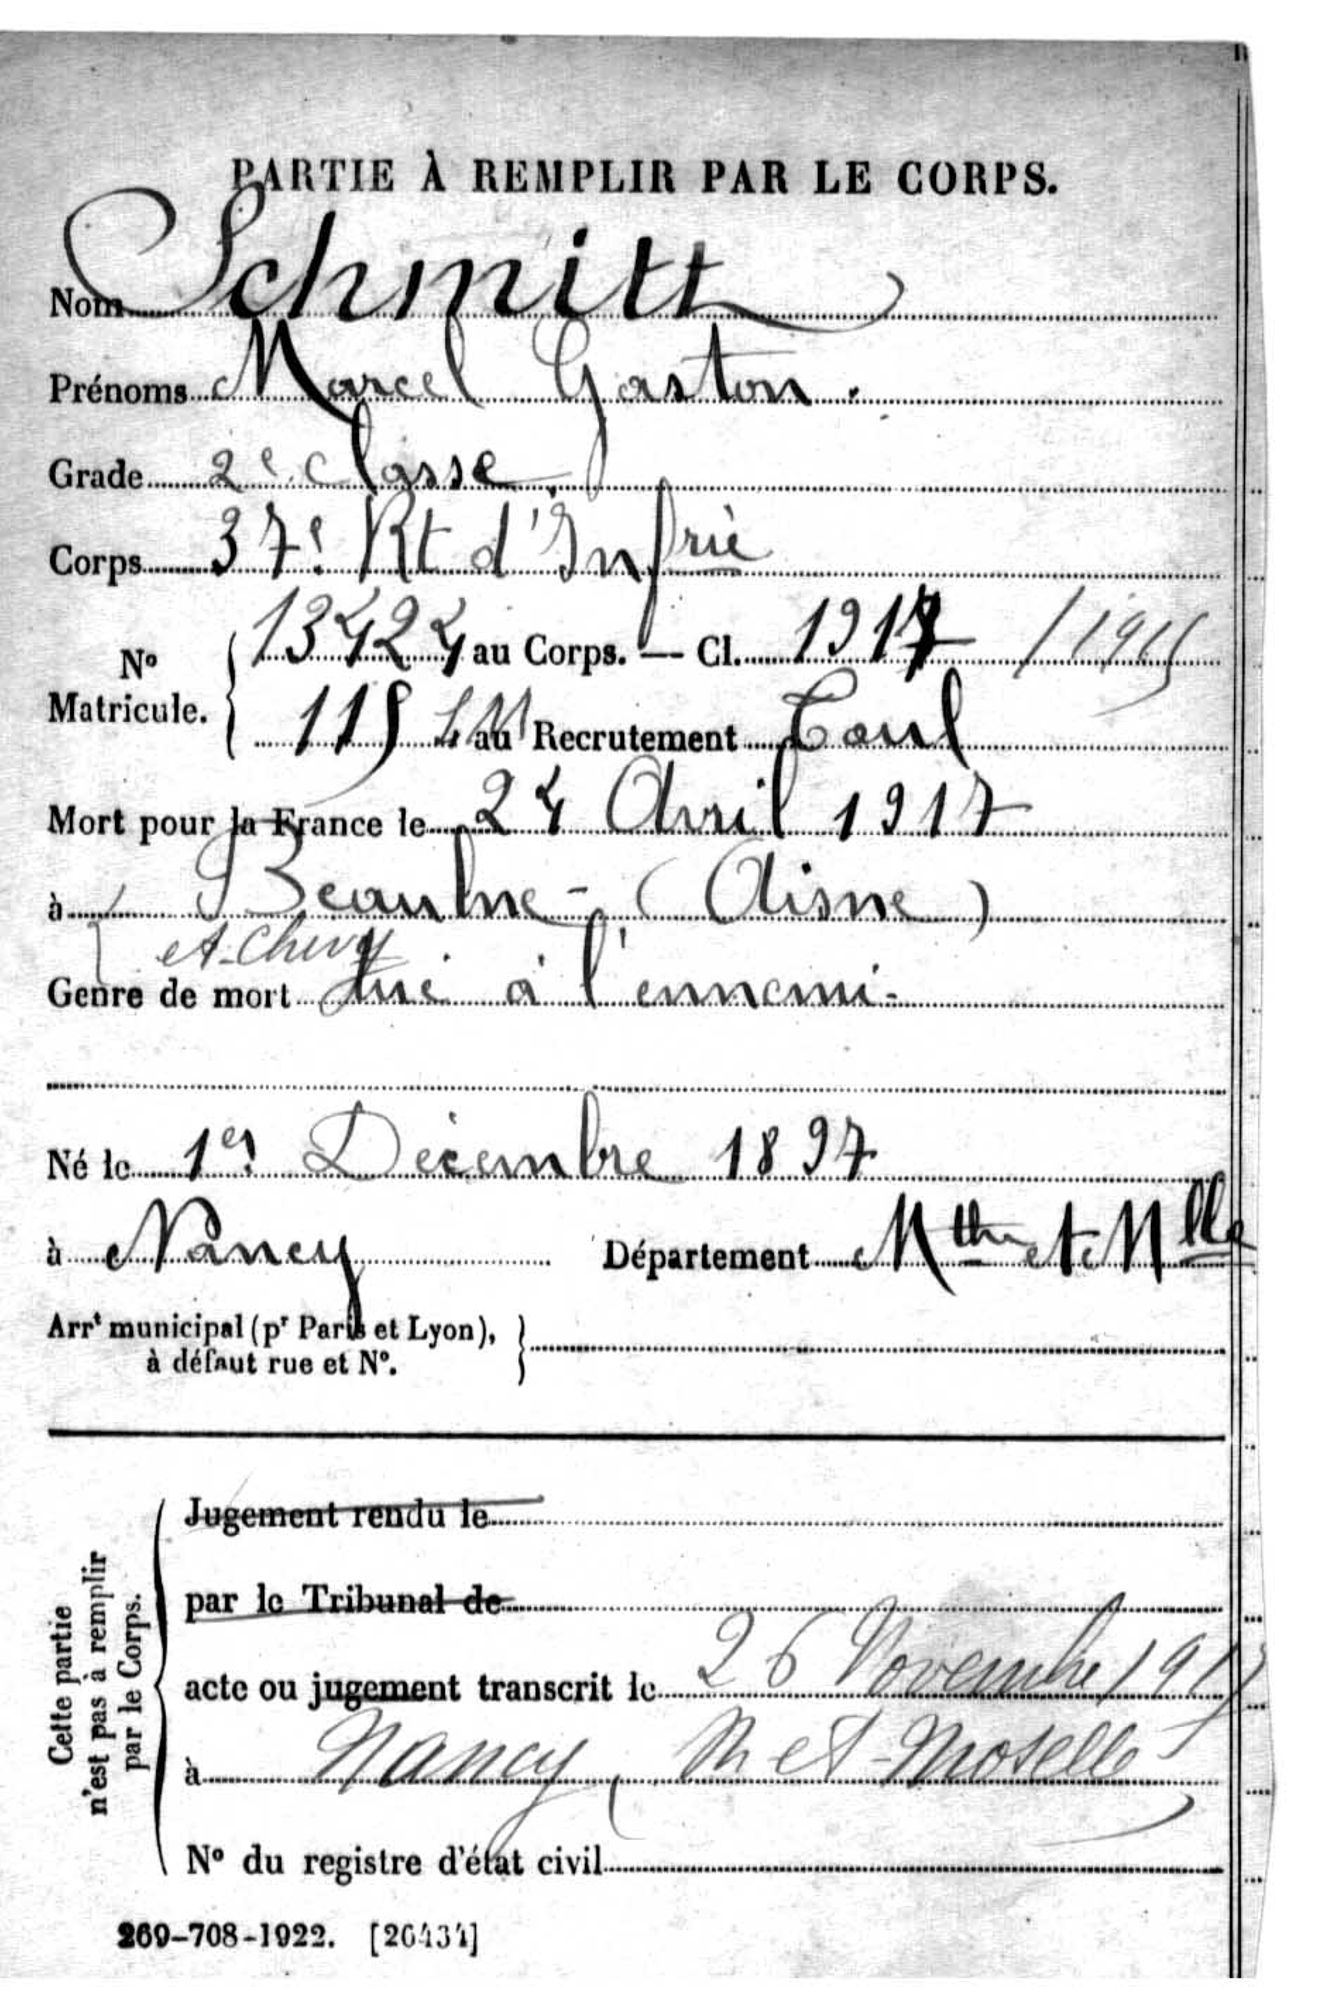 PARTIE À REMPLIR PAR LE CORPS.
Nom Schmitt
Prénoms Marcel Gaston.
Grade 2e classe
Corps 37e Rt d'Infrie
No Matricule. 13424 au Corps. — Cl. 1917 / 1915
115 LM au Recrutement Toul
Mort pour la France le 24 Avril 1917
à Beaulne - (Aisne)
et Chivy
Genre de mort tué à l'ennemi -
Né le 1er Décembre 1897
à Nancy Département Mthe et Mlle
Arrt municipal (pr Paris et Lyon),
à défaut rue et No.
Cette partie
n'est pas à remplir
par le Corps.
Jugement rendu le
par le Tribunal de
acte ou jugement transcrit le 26 Novembre 1917
à Nancy, M et Moselle
No du registre d'état civil
269-708-1922. [26434]